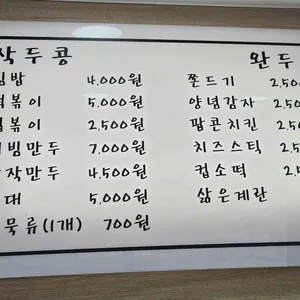 작두콩
김밥 4,000원
볶이 5,000원
볶이 2,500원
빔만두 7,000원
작만두 4,500원
대 5,000원
묵류(1개) 700원
완두
쫀드기 2,50
양념감자 2,50
팝콘치킨 2,50
치즈스틱 2,5
컵소떡 2,5
삶은계란